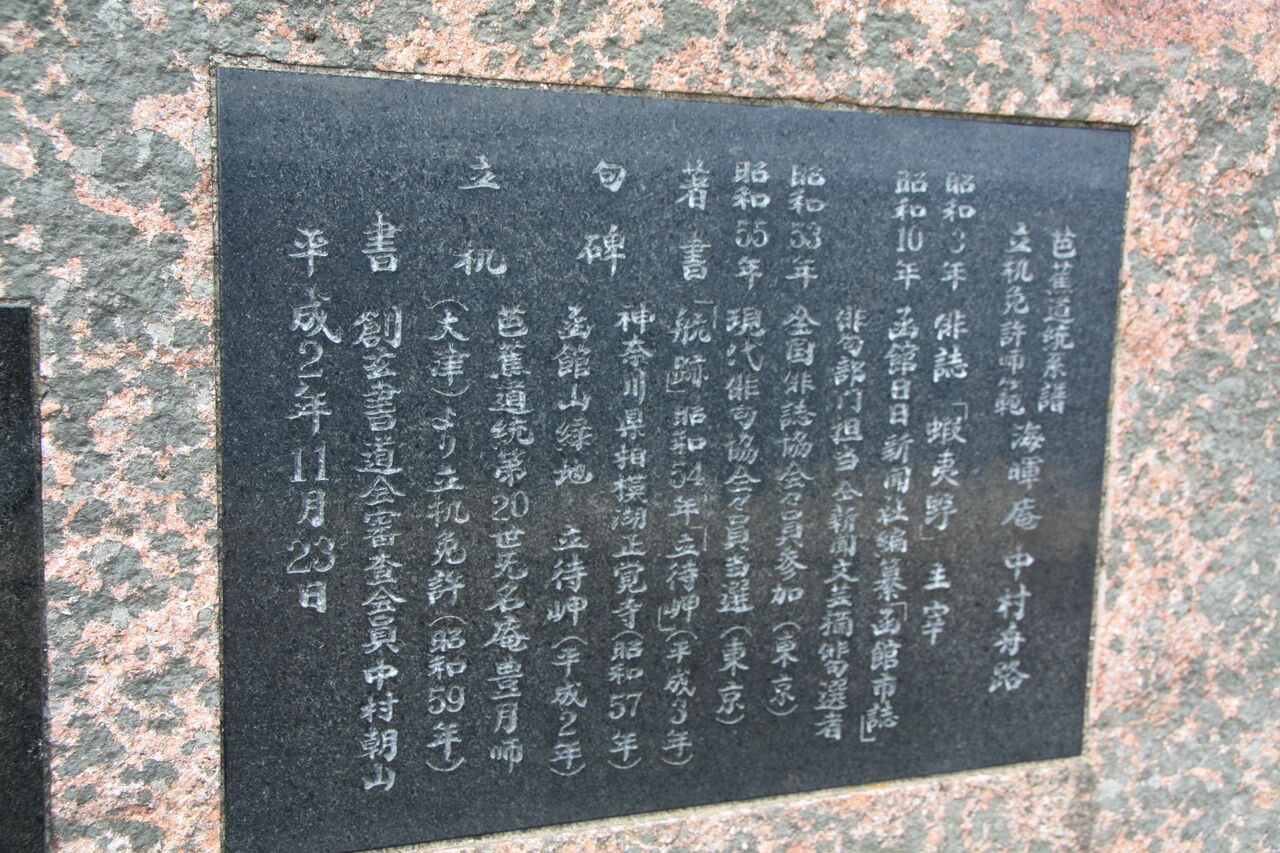 芭蕉道統系譜
立机免許師範 海暉庵 中村舟路
昭和3年 俳誌「蝦夷野」主宰
昭和10年 函館日日新聞社編纂「函館市誌」
俳句部門担当 仝新聞文芸欄俳句選者
昭和53年 全国俳誌協会々員参加(東京)
昭和55年 現代俳句協会々員当選(東京)
著書 「航跡」昭和54年「立待岬」(平成3年)
神奈川県相模湖正覚寺(昭和57年)
句碑 函館山緑地 立待岬(平成2年)
芭蕉道統第20世无名庵豊月師
立机 (大津)より立机免許(昭和59年)
書 創玄書道会審査会員中村朝山
平成2年11月23日